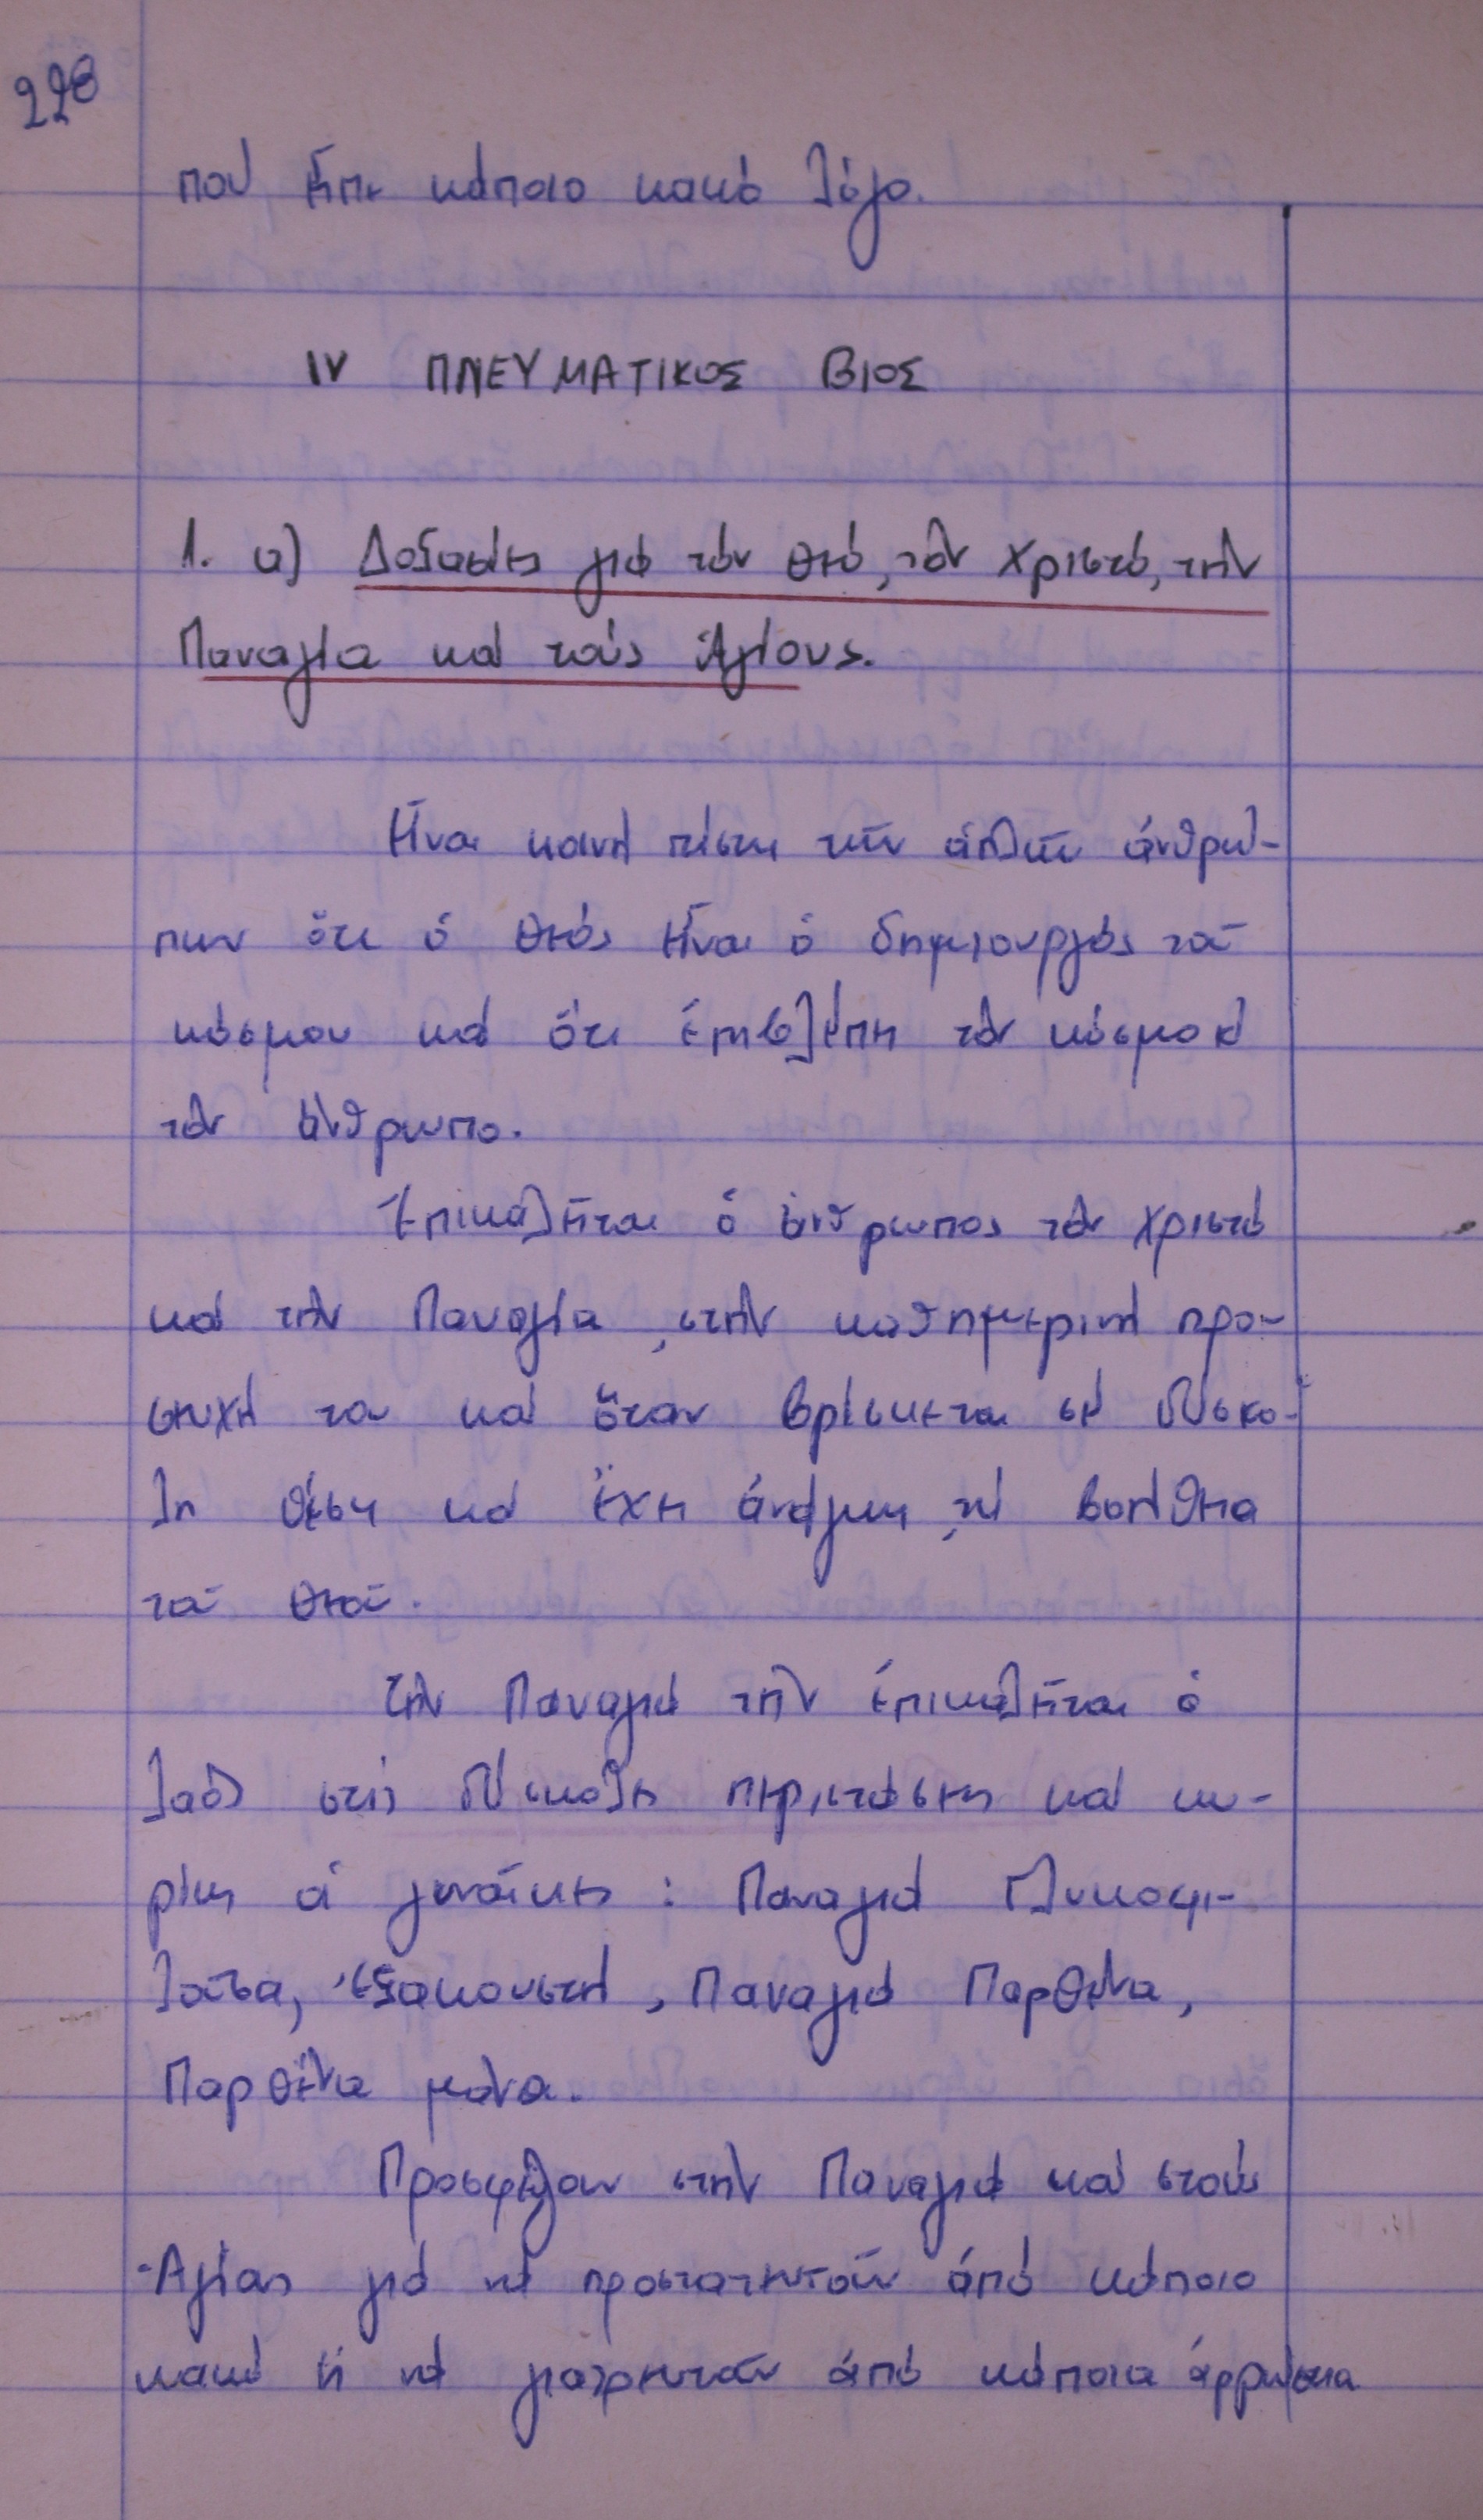 228
ποὺ εἶπε κάποιο κακό λόγο.
IV ΠΝΕΥΜΑΤΙΚΟΣ ΒΙΟΣ
1. α) Δοξασίες γιά τόν Θεό, τόν Χριστό, τήν
Παναγία καί τούς Ἁγίους.
Εἶναι κοινή πίστη τῶν ἁπλῶν ἀνθρώ-
πων ὅτι ὁ Θεός εἶναι ὁ δημιουργός τοῦ
κόσμου καί ὅτι ἐπιβλέπει τόν κόσμο κ'
τόν ἄνθρωπο.
Ἐπικαλεῖται ὁ ἄνθρωπος τόν Χριστό
καί τήν Παναγία, στήν καθημερινή προ-
σευχή του καί ὅταν βρίσκεται σέ δύσκο-
λη θέση καί ἔχει ἀνάγκη τή βοήθεια
τοῦ Θεοῦ.
Τήν Παναγιά τήν ἐπικαλεῖται ὁ
λαός στίς δύσκολες περιστάσεις καί κυ-
ρίως οἱ γυναῖκες : Παναγιά Γλυκοφι-
λοῦσα, Ἐξακουστή, Παναγιά Παρθένα,
Παρθένα μάνα.
Προσφεύγουν στήν Παναγιά καί στούς
Ἁγίους γιά νά προστατευτοῦν ἀπό κάποιο
κακό ἤ νά γιατρευτοῦν ἀπό κάποια ἀρρώστια